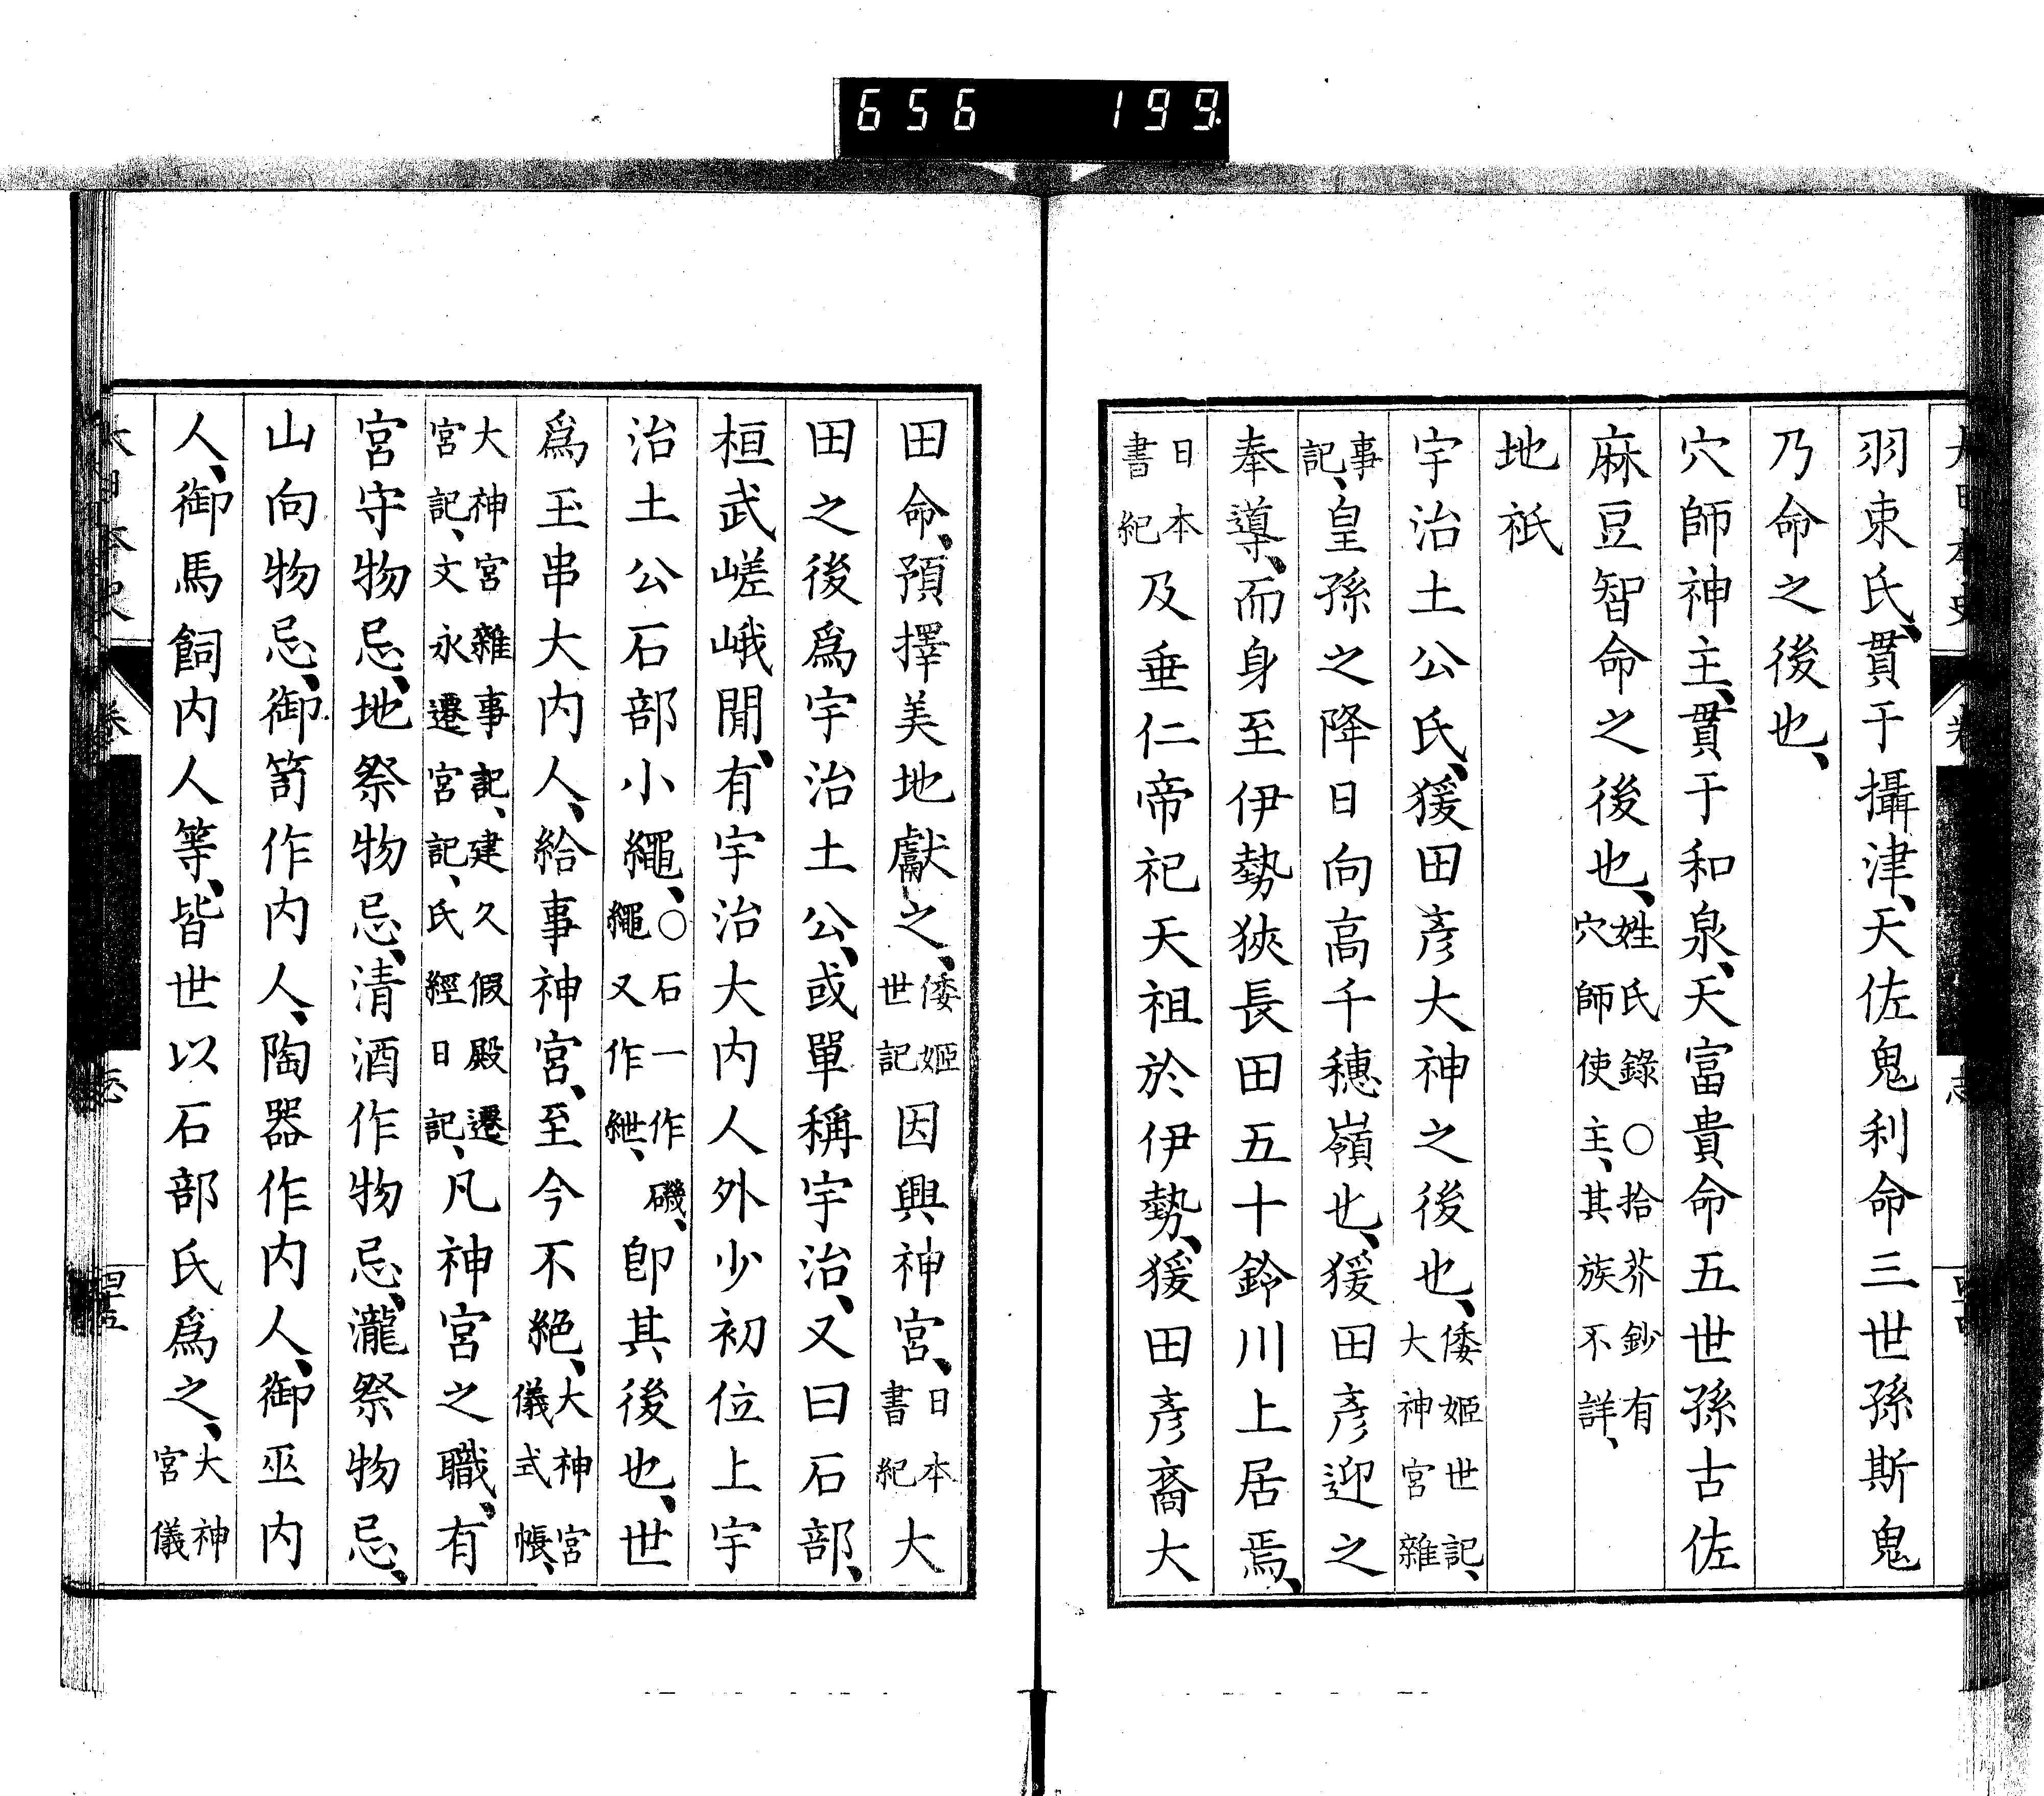 656 199
羽束氏、貫于攝津、天佐鬼利命三世孫斯鬼
乃命之後也、
穴師神主、貫于和泉、天富貴命五世孫古佐
麻豆智命之後也、姓氏錄○拾芥鈔有穴師使主、其族不詳、
地祇
宇治土公氏、猨田彥大神之後也、倭姬世記、大神宮雜
事記、皇孫之降日向高千穗嶺也、猨田彥迎之
奉導、而身至伊勢狹長田五十鈴川上居焉、
日本書紀及垂仁帝祀天祖於伊勢、猨田彥裔大
田命、預擇美地獻之、倭姬世記因興神宮、日本書紀大
田之後爲宇治土公、或單稱宇治、又曰石部、
桓武嵯峨閒、有宇治大內人外少初位上宇
治土公石部小繩、○石一作磯、繩又作紲、卽其後也、世
爲玉串大內人、給事神宮、至今不絕、大神宮儀式帳、
大神宮雜事記、建久假殿遷宮記、文永遷宮記、氏經日記、凡神宮之職、有
宮守物忌、地祭物忌、清酒作物忌、瀧祭物忌、
山向物忌、御笥作內人、陶器作內人、御巫內
人、御馬飼內人等、皆世以石部氏爲之、大神宮儀